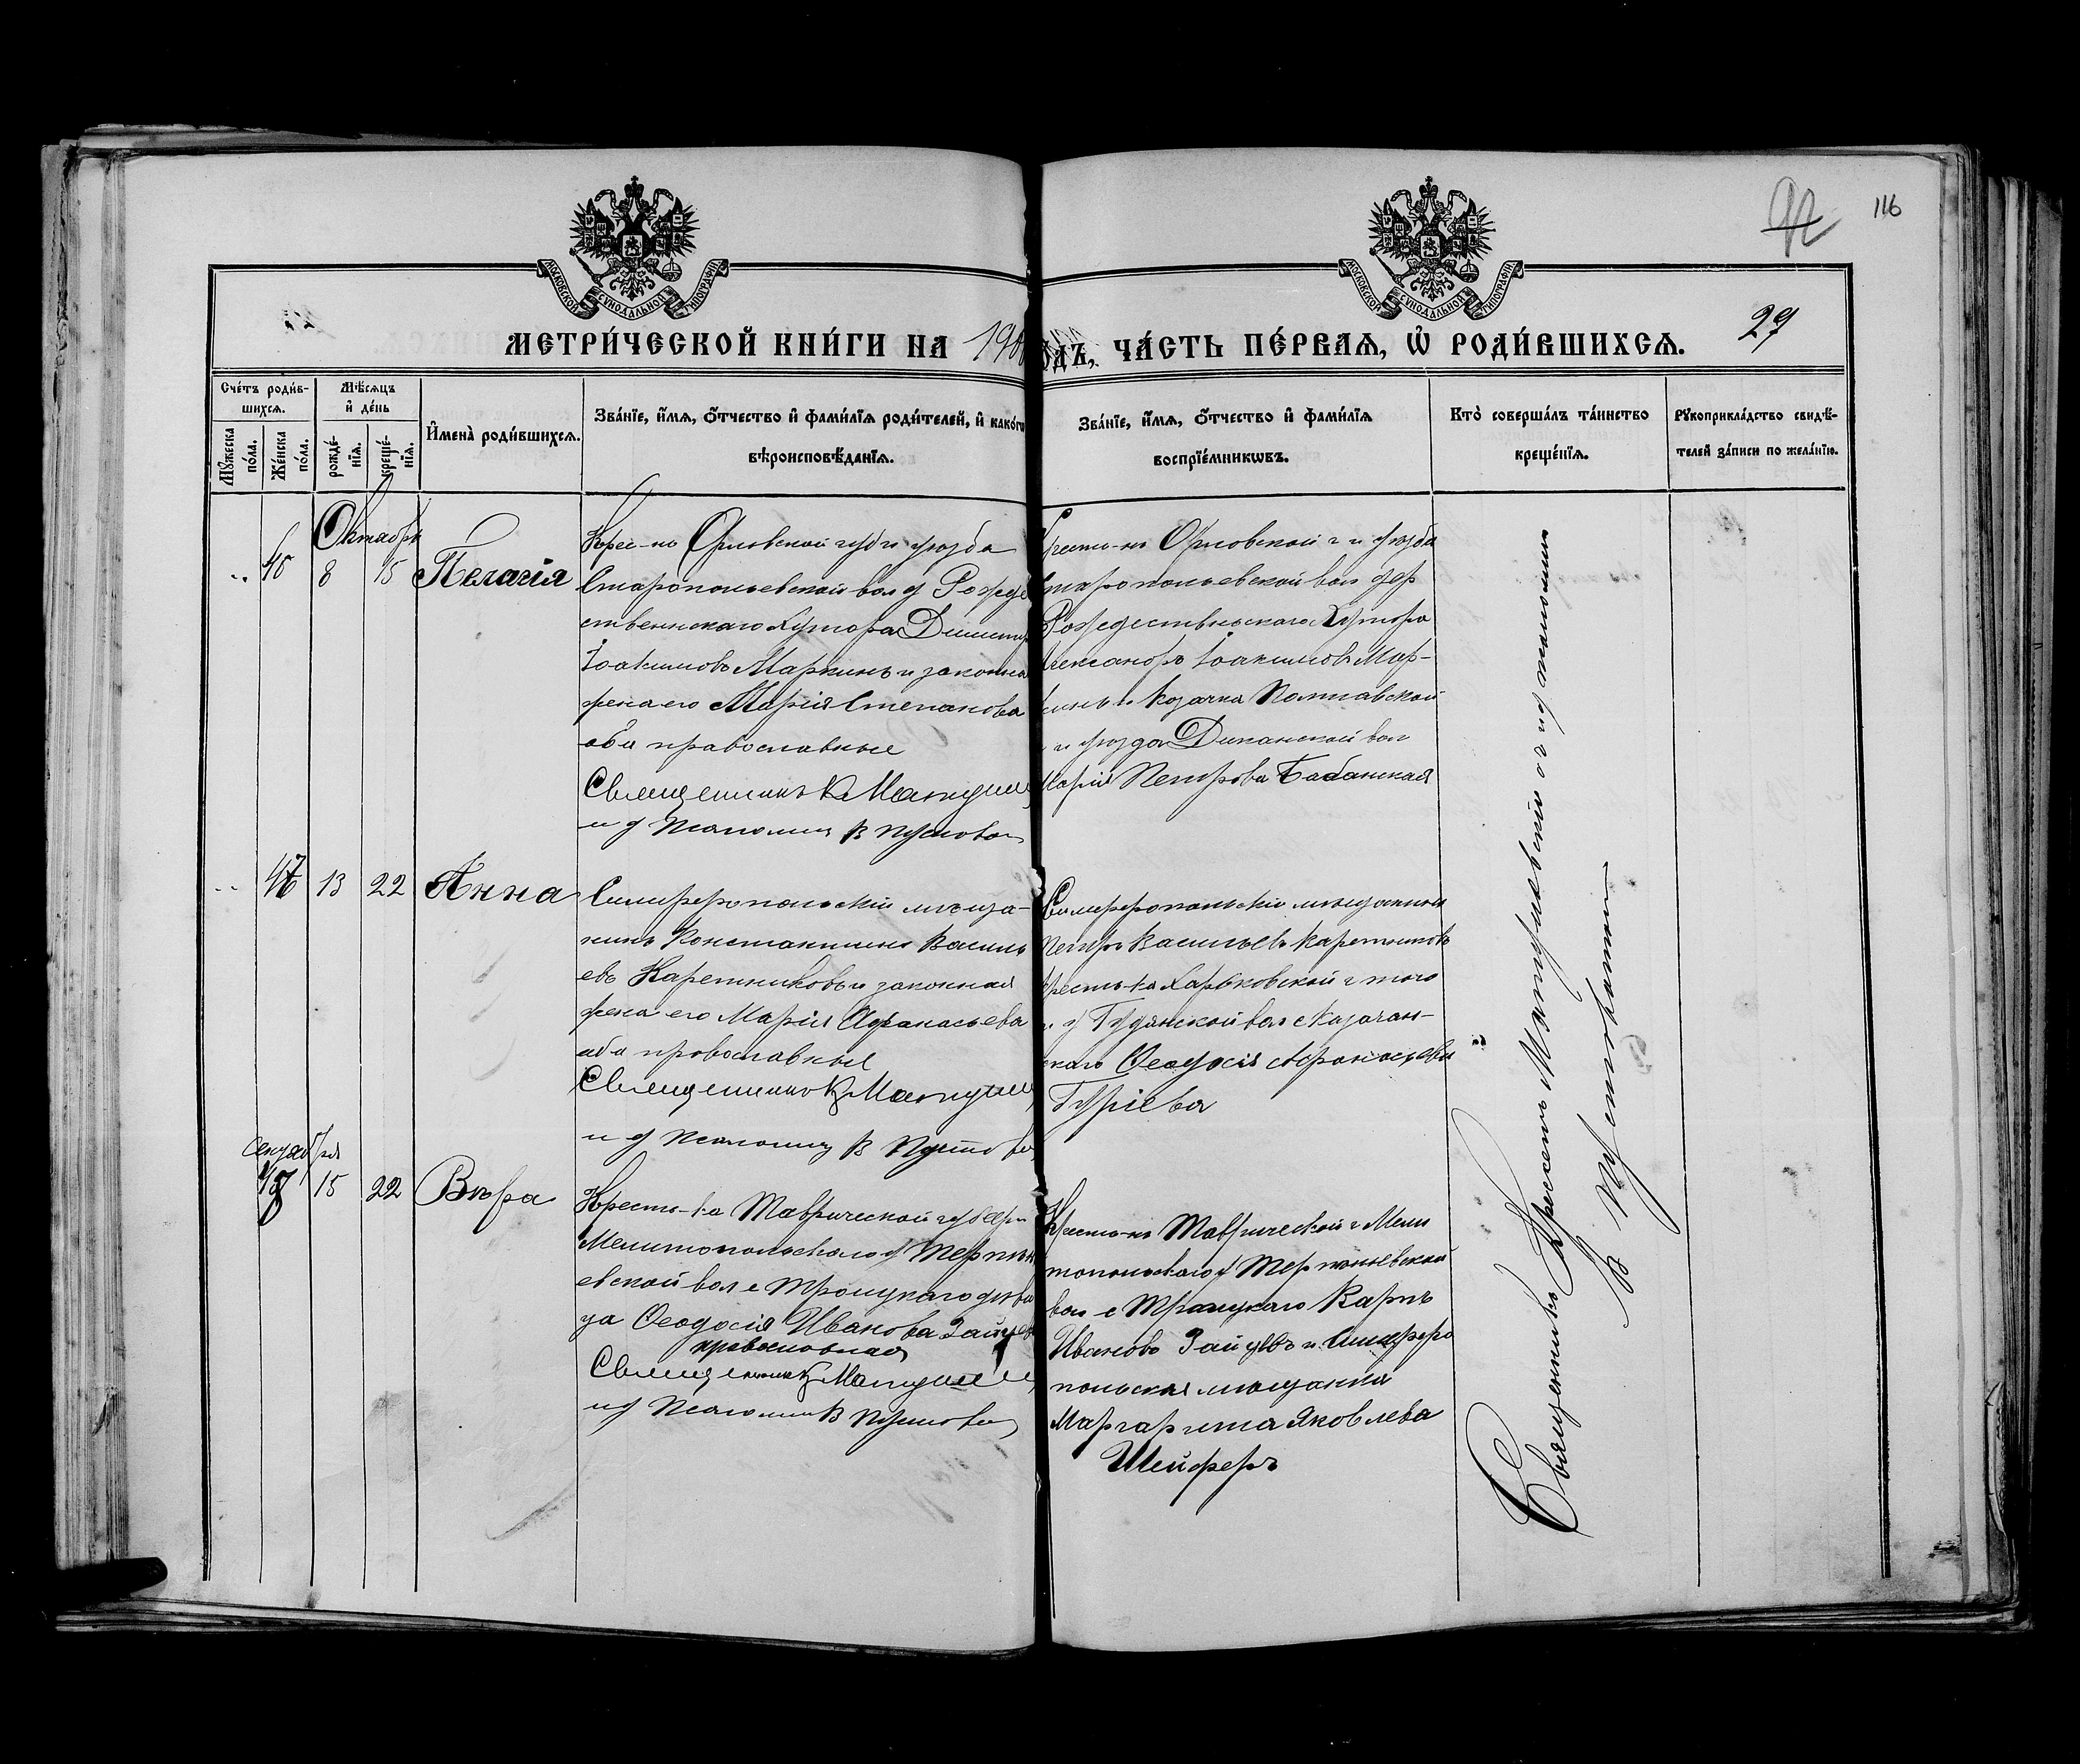 116
29
МОСКОВСКОЙ СУНОДАЛЬНОЙ ТИПОГРАФІИ
МОСКОВСКОЙ СУНОДАЛЬНОЙ ТИПОГРАФІИ
МЕТРИ́ЧЕСКОЙ КНИ́ГИ НА 190
ОДЪ, ЧА́СТЬ ПЕ́РВАЯ, Ѡ РОДИ́ВШИХСЯ.
Сче́тъ роди́в-
шихся.
Мꙋ́жеска
по́ла.
Же́нска
по́ла.
Мѣ́сяцъ
и҆ де́нь
рожде́-
нїя.
креще́-
нїя.
И҆мена̀ роди́вшихся.
Зва́нїе, и҆́мя, ѻ҆́тчество и҆ фами́лїя роди́телей, и҆ како́гѡ
вѣроисповѣ́данїя.
Зва́нїе, и҆́мя, ѻ҆́тчество и҆ фами́лїя
воспрїе́мникωвъ.
Кто̀ соверша́лъ та́инство
креще́нїя.
Рꙋкоприкла́дство свидѣ́-
телей за́писи по жела́нїю.
Октябрь
8 15 Пелагія
Крес-нъ Орловской губ и уѣзда
Старопольевской вол д Рожде
ственнскаго Хутора Димитр
Іоакимовъ Маркинъ и законна
жена его Марія Степанова
оба православные
Священникъ К Мацуш
и д Псаломщ В Пустов
Орловской г и уѣзда
старопольевской вол дер
Рождественскаго Хутора
лександръ Іоакимовъ Мар-
кинъ и Козачка Полтавской
и уѣзда Диканской вол
Марія Петрова Бабанская
47 13 22 Анна
Симферопольскій мѣща-
нинъ Константинъ Василь
евъ Каретниковъ и законная
жена его Марія Афанасьева
оба православные
Священникъ К Мацуш
и д Псаломщ В Пустов
Симферопольскій мѣщанинъ
Петръ Васильевъ Каретниковъ
кресть-ка Харьковской г того
вол с Казачан-
скаго Ѳеодосія Афанасьева
Гуріева
15 22 Вѣра
Кресть-ка Таврической губерн
Мелитопольскаго у Терпѣн
евской вол с Троицкаго дѣви
ца Ѳеодосія Иванова Зайцев
православная
Священникъ К Мацуш
и д Псаломщ В Пустов
Кресть-нъ Таврической г Мели
топольскаго у Терпѣньевской
вол с Троицкаго Карпъ
Ивановъ Зайцевъ и Симферо
польская мѣщанка
Маргарита Яковлева
Шейферъ
Священникъ съ псаломщикомъ
В